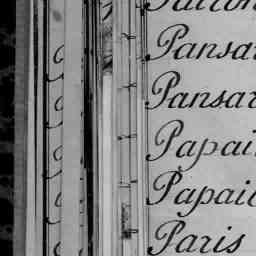 Pansar
Pansar
Papai
Papail
Paris